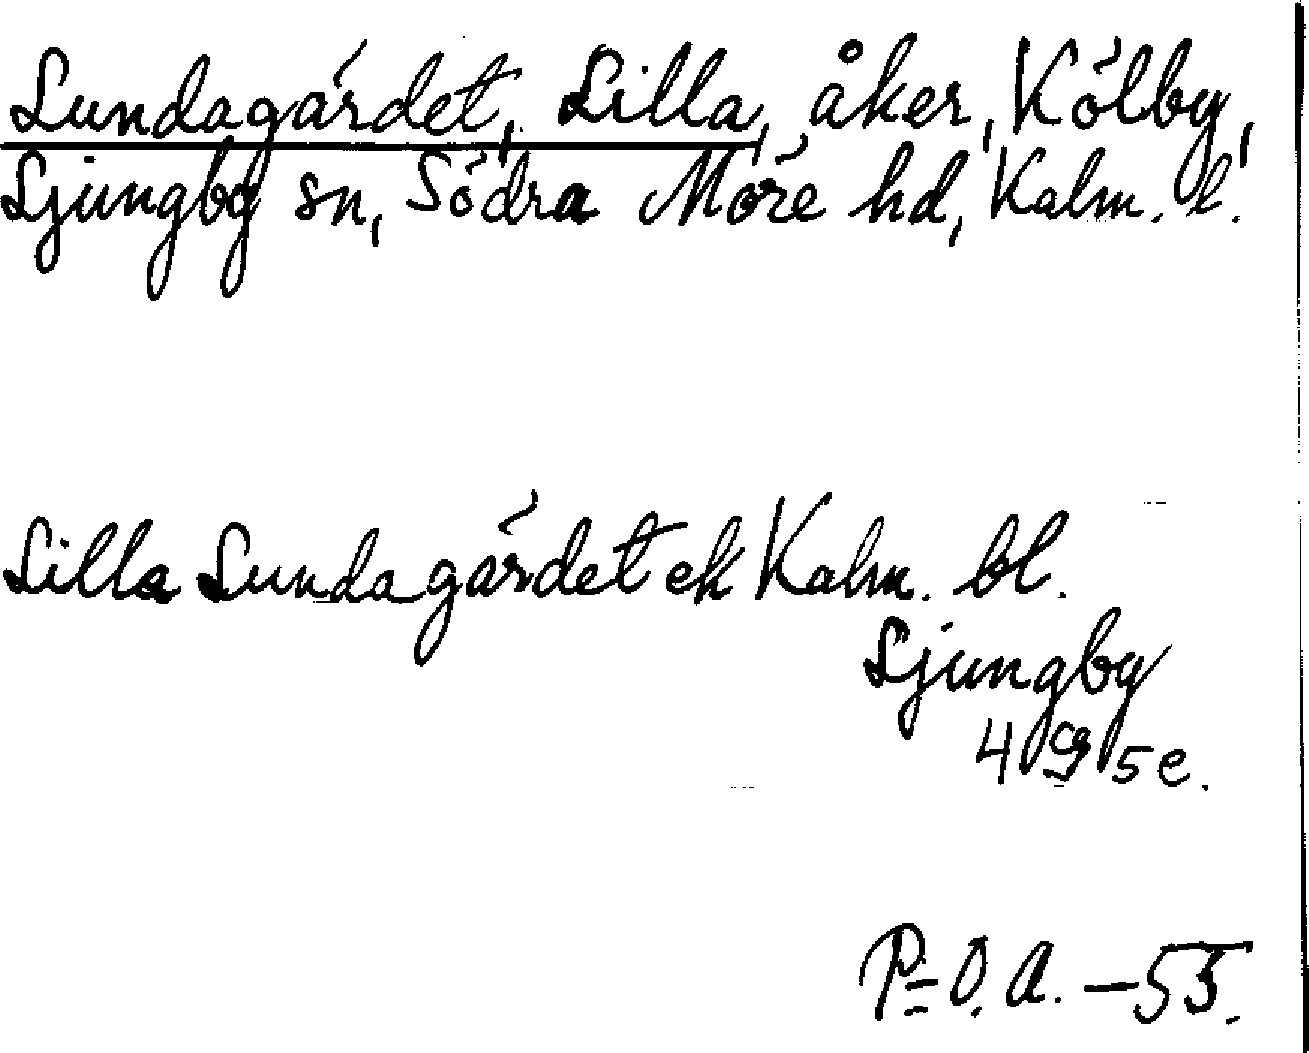 Lundagärdet, Lilla, åker, Kölby,
Ljungby sn, Södra Möre hd, Kalm. l.
Lilla Lundagärdet ek Kalm. bl.
Ljungby
4 g 5 e.
P=O. A. –55.